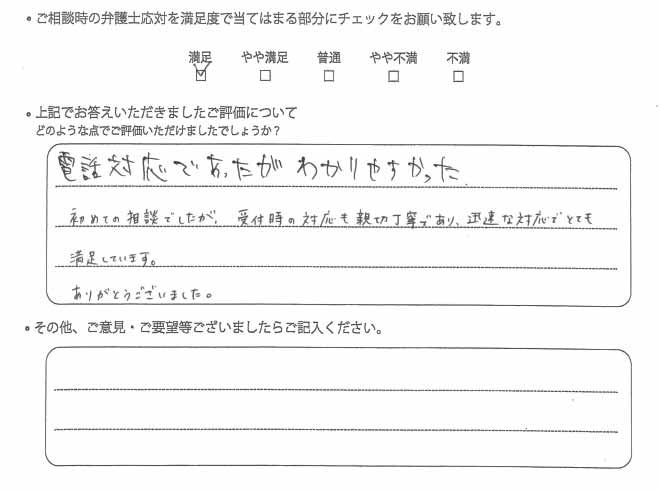 • ご相談時の弁護士応対を満足度で当てはまる部分にチェックをお願い致します。
満足 やや満足 普通 やや不満 不満
• 上記でお答えいただきましたご評価について
どのような点でご評価いただけましたでしょうか？
電話対応であったがわかりやすかった
初めての相談でしたが、受付時の対応も親切丁寧であり、迅速な対応でとても
満足しています。
ありがとうございました。
• その他、ご意見・ご要望等ございましたらご記入ください。